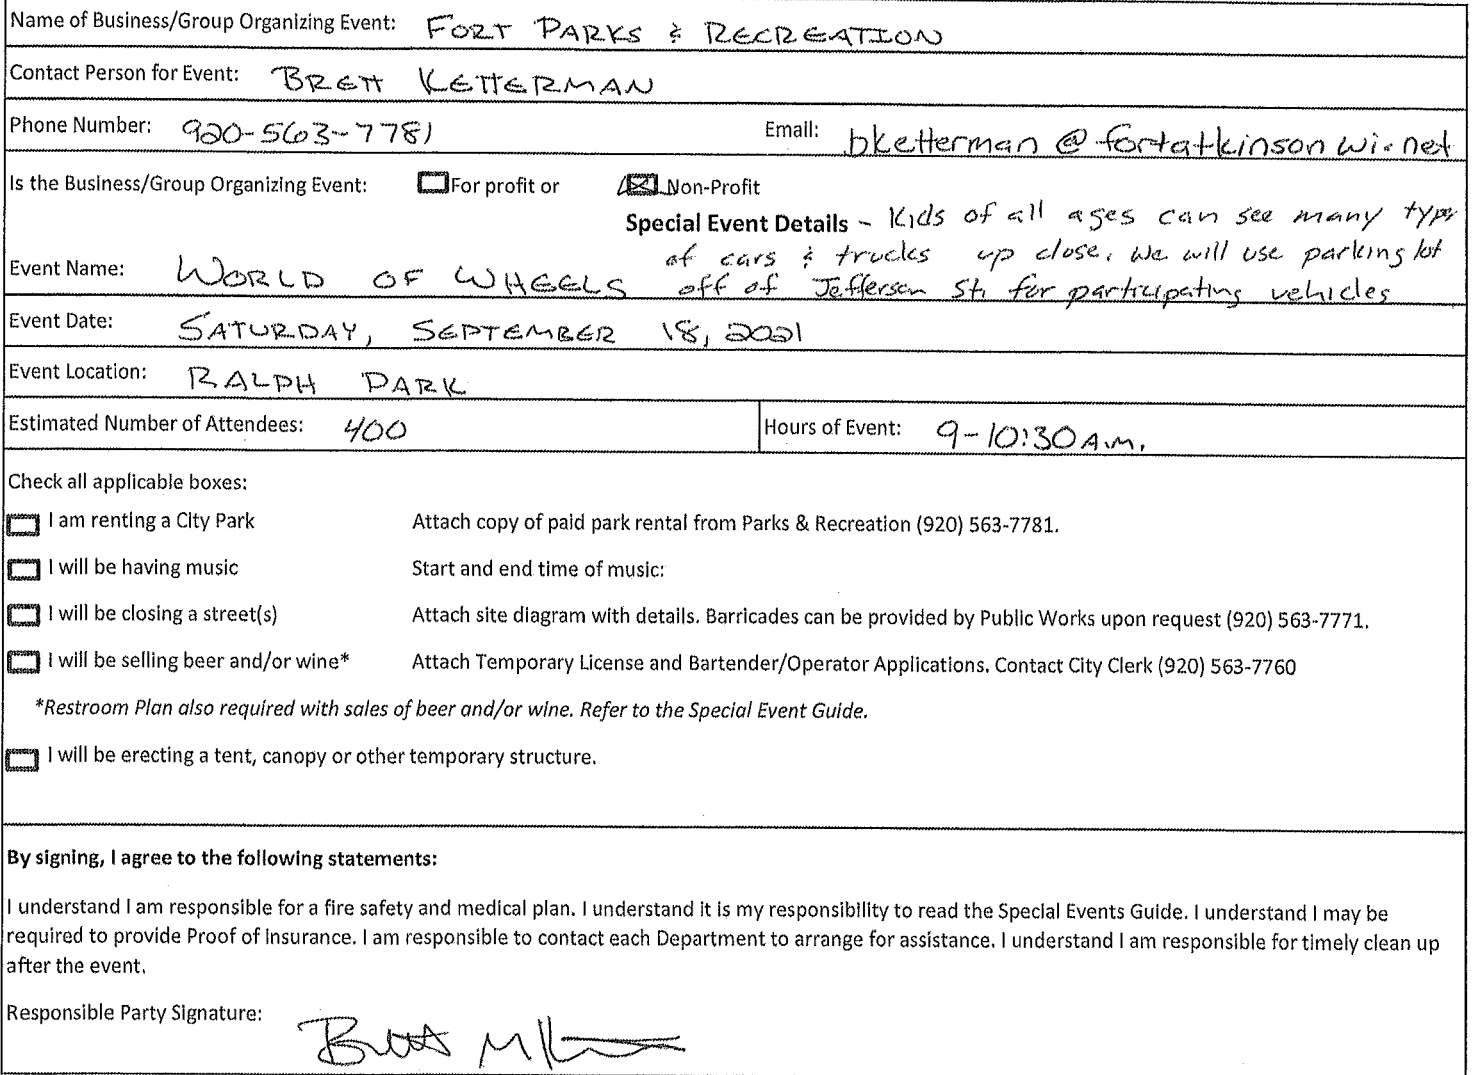 Name of Business/Group Organizing Event: FORT PARKS & RECREATION
Contact Person for Event: BRETT KETTERMAN
Phone Number: 920-563-7781 Email: bketterman@fortatkinsonwi.net
Is the Business/Group Organizing Event: For profit or Non-Profit
Special Event Details - Kids of all ages can see many types
of cars & trucks up close. We will use parking lot
Event Name: WORLD OF WHEELS off of Jefferson St. for participating vehicles
Event Date: SATURDAY, SEPTEMBER 18, 2021
Event Location: RALPH PARK
Estimated Number of Attendees: 400 Hours of Event: 9-10:30 A.M.
Check all applicable boxes:
I am renting a City Park Attach copy of paid park rental from Parks & Recreation (920) 563-7781.
I will be having music Start and end time of music:
I will be closing a street(s) Attach site diagram with details. Barricades can be provided by Public Works upon request (920) 563-7771.
I will be selling beer and/or wine* Attach Temporary License and Bartender/Operator Applications. Contact City Clerk (920) 563-7760
*Restroom Plan also required with sales of beer and/or wine. Refer to the Special Event Guide.
I will be erecting a tent, canopy or other temporary structure.
By signing, I agree to the following statements:
I understand I am responsible for a fire safety and medical plan. I understand it is my responsibility to read the Special Events Guide. I understand I may be
required to provide Proof of Insurance. I am responsible to contact each Department to arrange for assistance. I understand I am responsible for timely clean up
after the event.
Responsible Party Signature: Brett